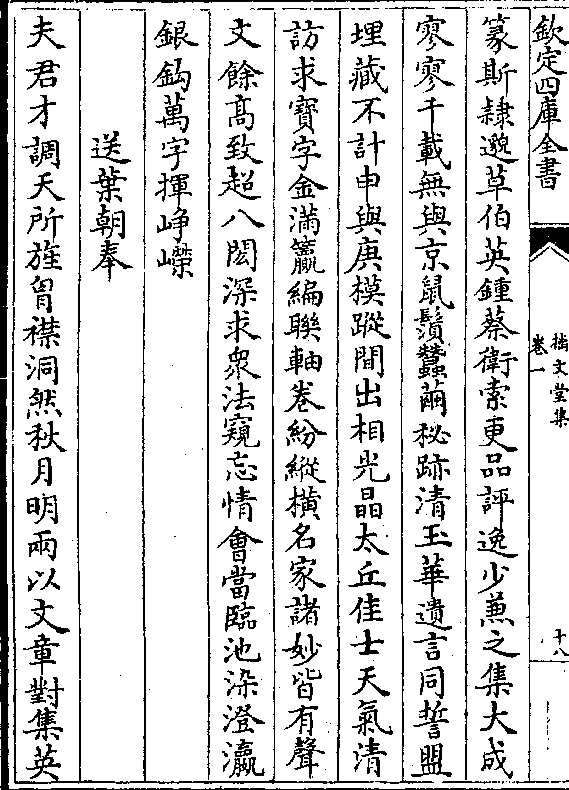 欽定四庫全書
摛文堂集
卷一
十八
篆斯隷邈草伯英鍾蔡衛索更品評逸少兼之集大成
寥寥千載無與京鼠鬚蠶繭秘跡清玉華遺言同誓盟
埋藏不計申與庚模蹤間出相光晶太丘佳士天氣清
訪求寶字金滿籯編聯軸卷紛縱横名家諸妙皆有聲
文餘髙致超八閎深求衆法窺忘情會當臨池染澄瀛
銀鈎萬字揮崢嶸
送葉朝奉
夫君才調天所旌胷襟洞然秋月明兩以文章對集英